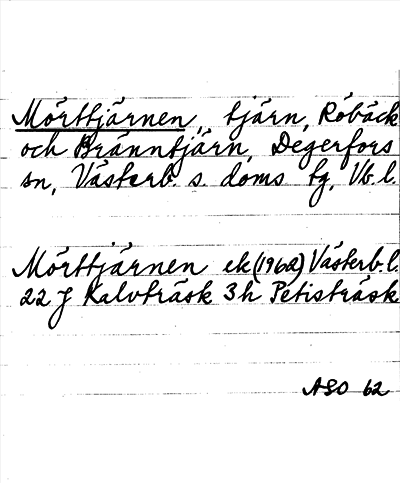 Mörttjärnen, tjärn, Röbäck
och Bränntjärn, Degerfors
sn, Västerb. s. doms tg, Vb. l.
Mörttjärnen ek (1962) Västerb. l.
22 J Kalvträsk 3h Petisträsk
ASO 62